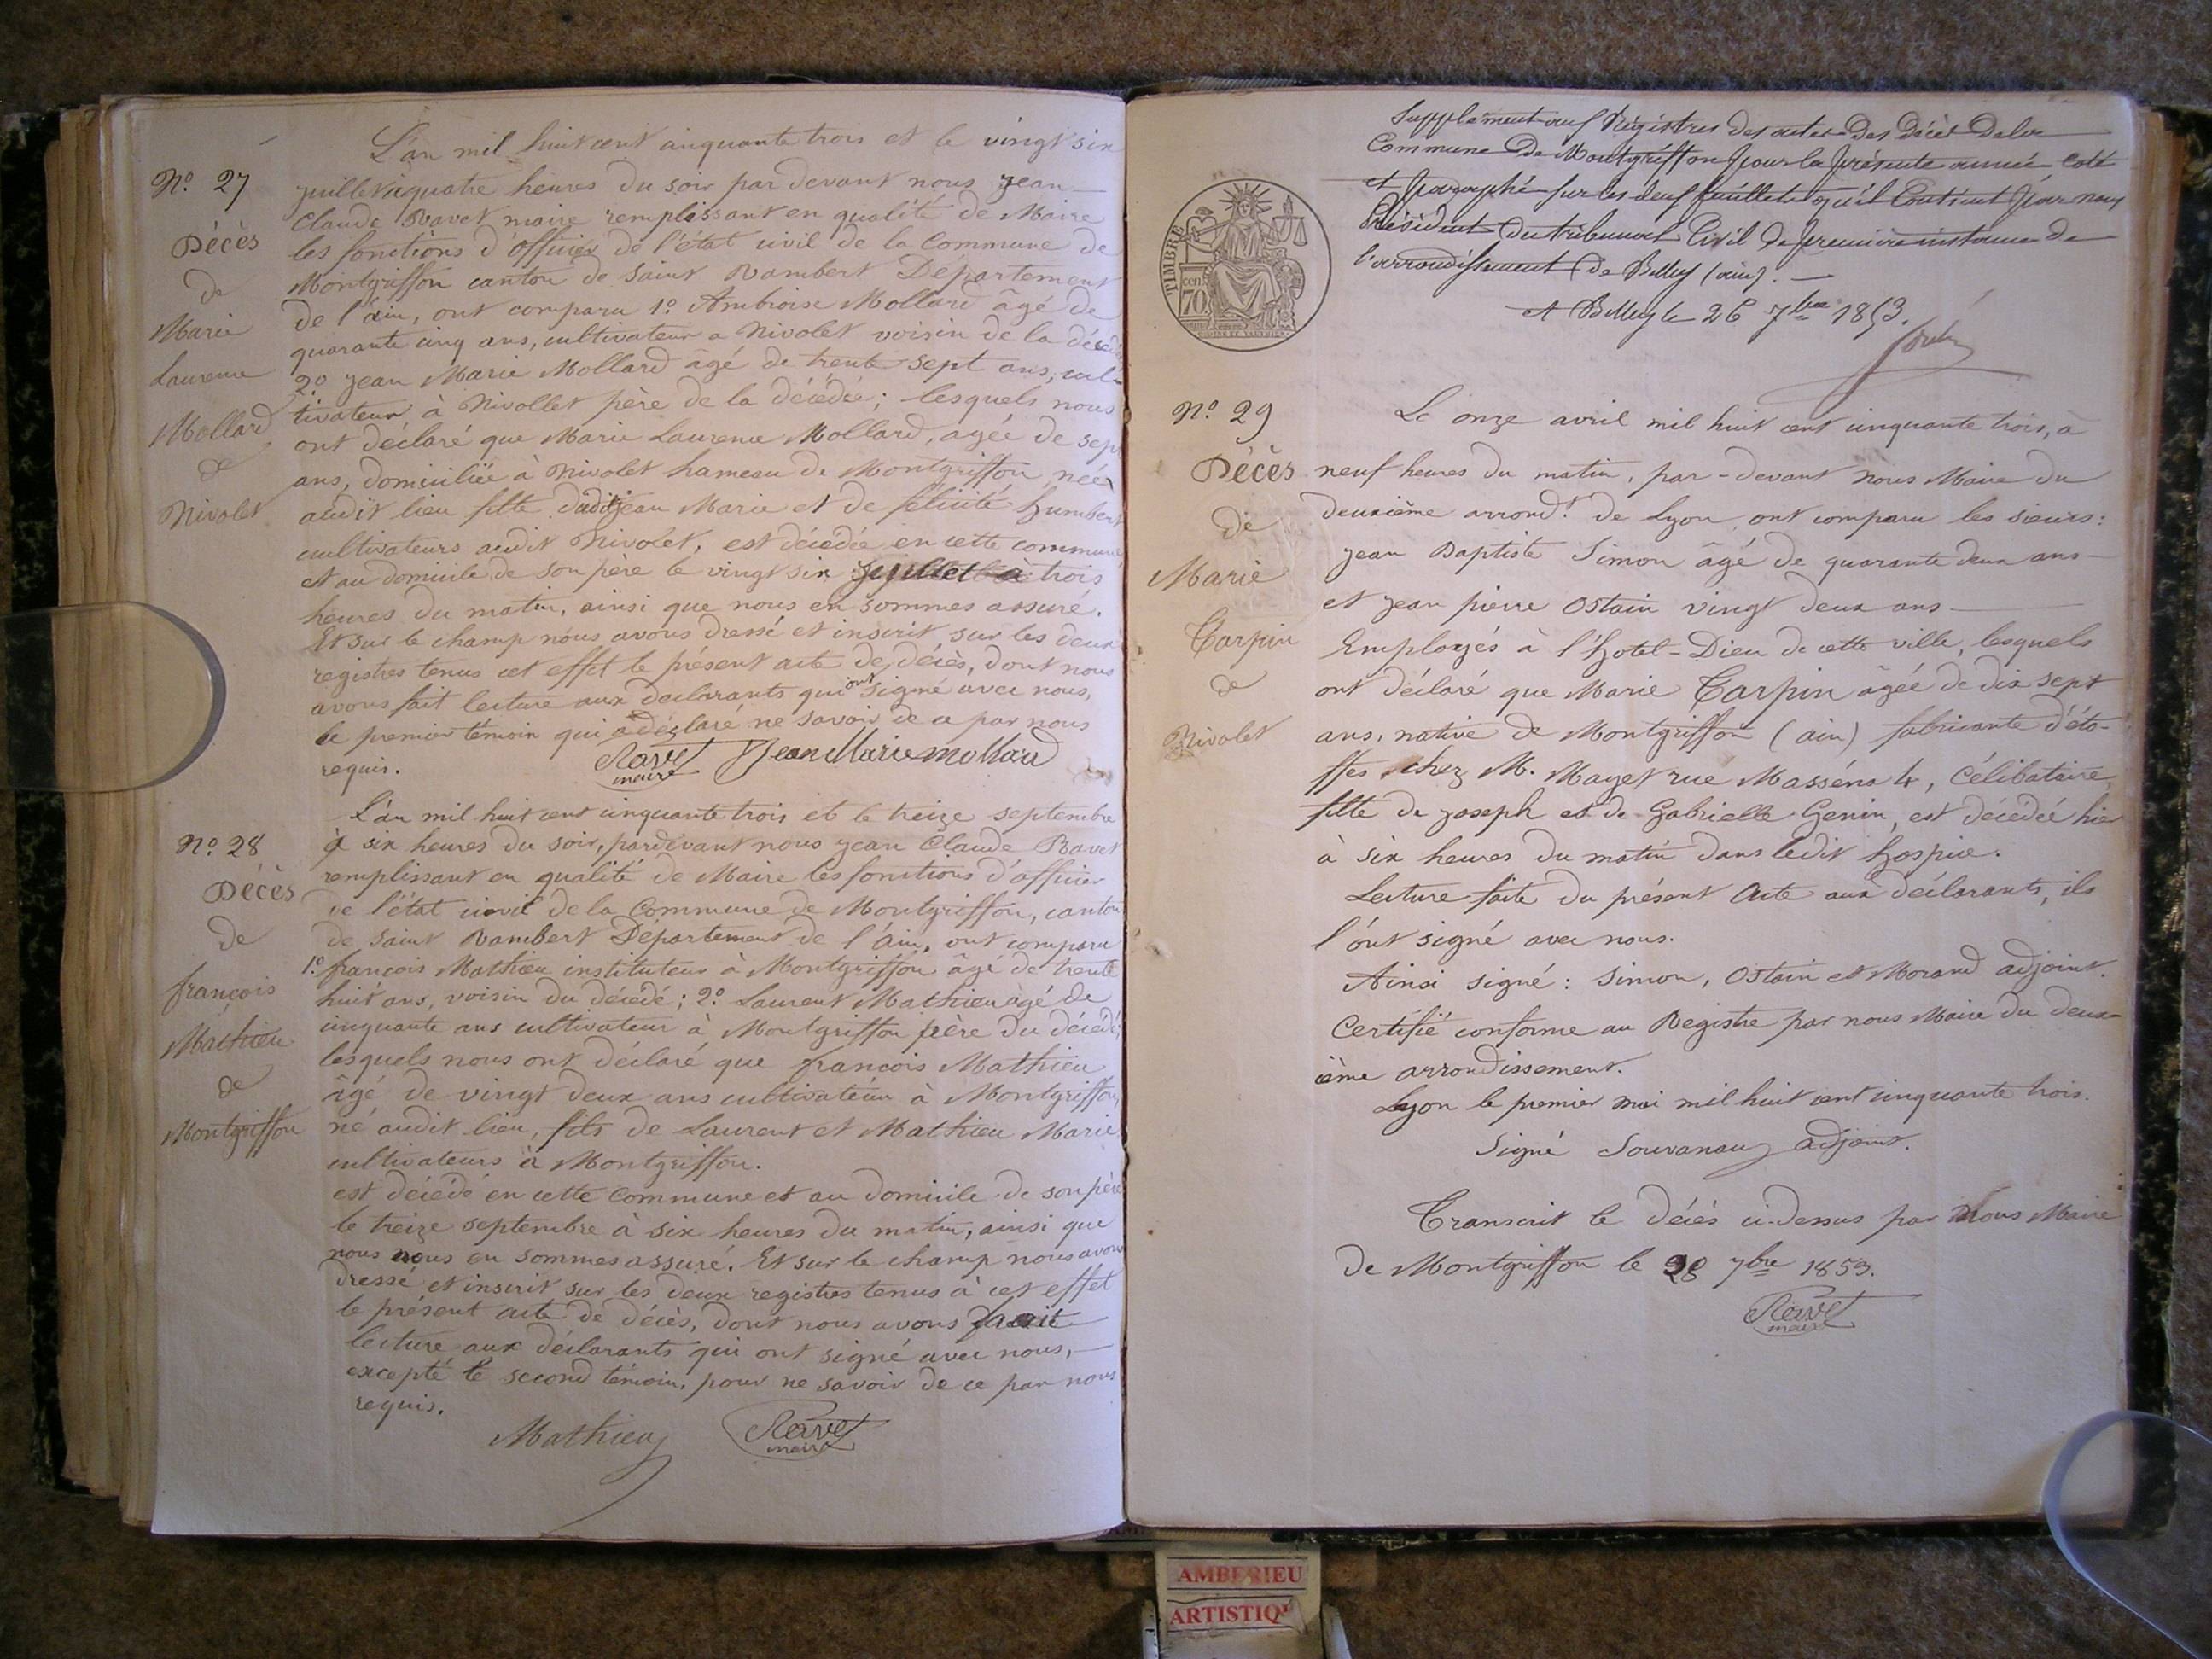 L'an mil huit cent cinquante trois et le vingt six
N.º 27
juillet à quatre heures du soir par devant nous Jean
Claude Ravet maire remplissant en qualité de Maire
Décès
les fonctions d'officier de l'état civil de la Commune de
de
Montgriffon canton de Saint Rambert Département
Marie
de l'ain, ont comparu 1.º Ambroise Mollard âgé de
quarante cinq ans, cultivateur a Nivolet voisin de la décédée
Laurence
2º Jean Marie Mollard âgé de trente sept ans, cul-
Mollard
tivateur à Nivollet père de la décédée; lesquels nous
ont déclaré que Marie Laurence Mollard, agée de sept
de
ans, domiciliée à Nivolet hameau de Montgriffon née
Nivolet
audit lieu fille dudit Jean Marie et de félicité humbert
cultivateurs audit Nivolet, est décédée en cette commune
et au domicile de son père le vingt six juillet à trois
heures du matin, ainsi que nous en sommes assuré.
Et sur le champ nous avons dressé et inscrit sur les deux
registres tenus cet effet le présent acte de décès, dont nous
avons fait lecture aux déclarants qui ont signé avec nous,
le premier témoin qui a déclaré ne savoir de ce par nous
requis.
Ravet
maire
Jean Marie mollard
L'an mil huit cent cinquante trois et le treize septembre
N.º 28
à six heures du soir, pardevant nous Jean Claude Ravet
remplissant en qualité de Maire les fonctions d'officier
Décès
de l'état civil de la Commune de Montgriffon, canton
de
de Saint Rambert Département de l'Ain, ont comparu
1.º françois Mathieu instituteur à Montgriffon âgé de trente
françois
huit ans, voisin du décédé; 2.º Laurent Mathieu agé de
Mathieu
cinquante ans cultivateur à Montgriffon père du décédé;
lesquels nous ont déclaré que françois Mathieu
de
âgé de vingt deux ans cultivateur à Montgriffon,
Montgriffon
né audit lieu, fils de Laurent et Mathieu Marie
cultivateurs à Montgriffon.
est décédé en cette Commune et au domicile de son père
le treize septembre à six heures du matin, ainsi que
nous nous en sommes assuré. Et sur le champ nous avons
dressé et inscrit sur les deux registres tenus à cet effet
le présent acte de décès, dont nous avons fait
lecture aux déclarants qui ont signé avec nous,
excepté le second témoin, pour ne savoir de ce par nous
requis.
Mathieu
Ravet
maire
Supplément aux Régistres des actes des décès de la
Commune de Montgriffon pour la présente année coté
et paraphé sur les deux feuillets qu'il Contient par nous
Président du tribunal Civil de première instance de
l'arrondissement de Belley (ain).
A Belley le 26 7bre 1853.
TIMBRE
cen
70
N.º 29
Le onze avril mil huit cent cinquante trois, à
Décès
neuf heures du matin, par-devant nous Maire du
de
deuxième arrond.t de Lyon, ont comparu les sieurs:
Jean Baptiste Simon âgé de quarante deux ans
Marie
et Jean pierre Ostain vingt deux ans
Carpin
Employés à l'hotel-Dieu de cette ville, lesquels
de
ont déclaré que Marie Carpin âgée de dix sept
Nivolet
ans, native de Montgriffon (ain) fabricante d'éto-
ffes, chez M. Mayet rue Masséna 4, Célibataire,
fille de Joseph et de Gabrielle Genin, est décédée hier
à six heures du matin dans ledit hospice.
Lecture faite du présent Acte aux déclarants, ils
l'ont signé avec nous.
Ainsi signé: Simon, Ostain et Morand adjoint.
Certifié conforme au Registre par nous Maire du deux-
ième arrondissement.
Lyon le premier mai mil huit cent cinquante trois.
Signé Souvanau adjoint.
Transcrit le décès ci-dessus par Nous Maire
de Montgriffon le 28 7bre 1853.
Ravet
maire
AMBERIEU
ARTISTIQ